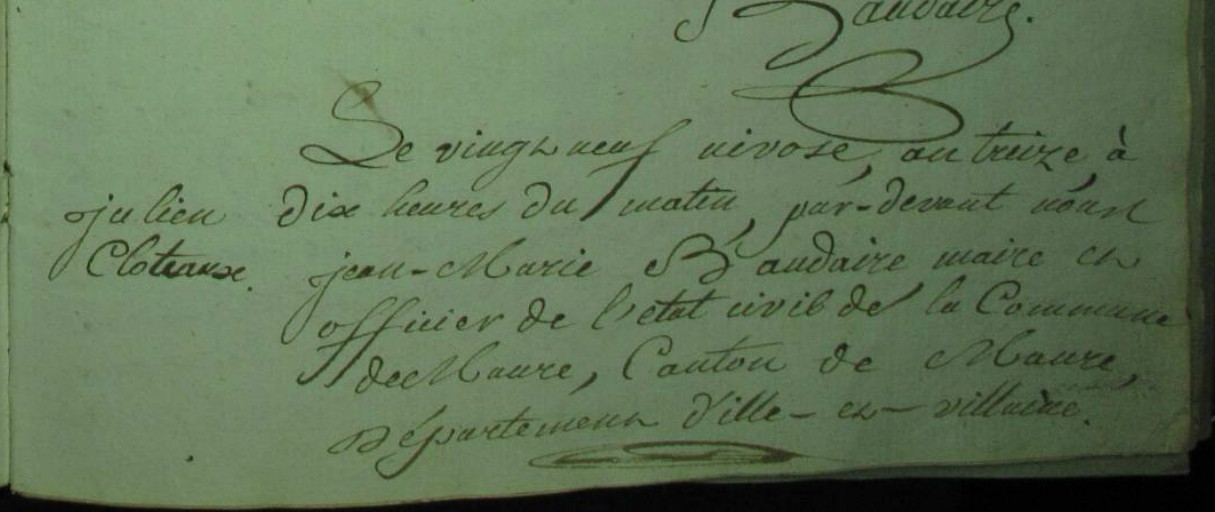 Baudaire.
Le vingt neuf nivose, an treize, à
julien
Cloteaux.
dix heures du matin, par-devant nous
jean-Marie Baudaire maire et
officier de l'etat civil de la Commune
de Maure, Canton de Maure,
Département d'ille-et-villaine.